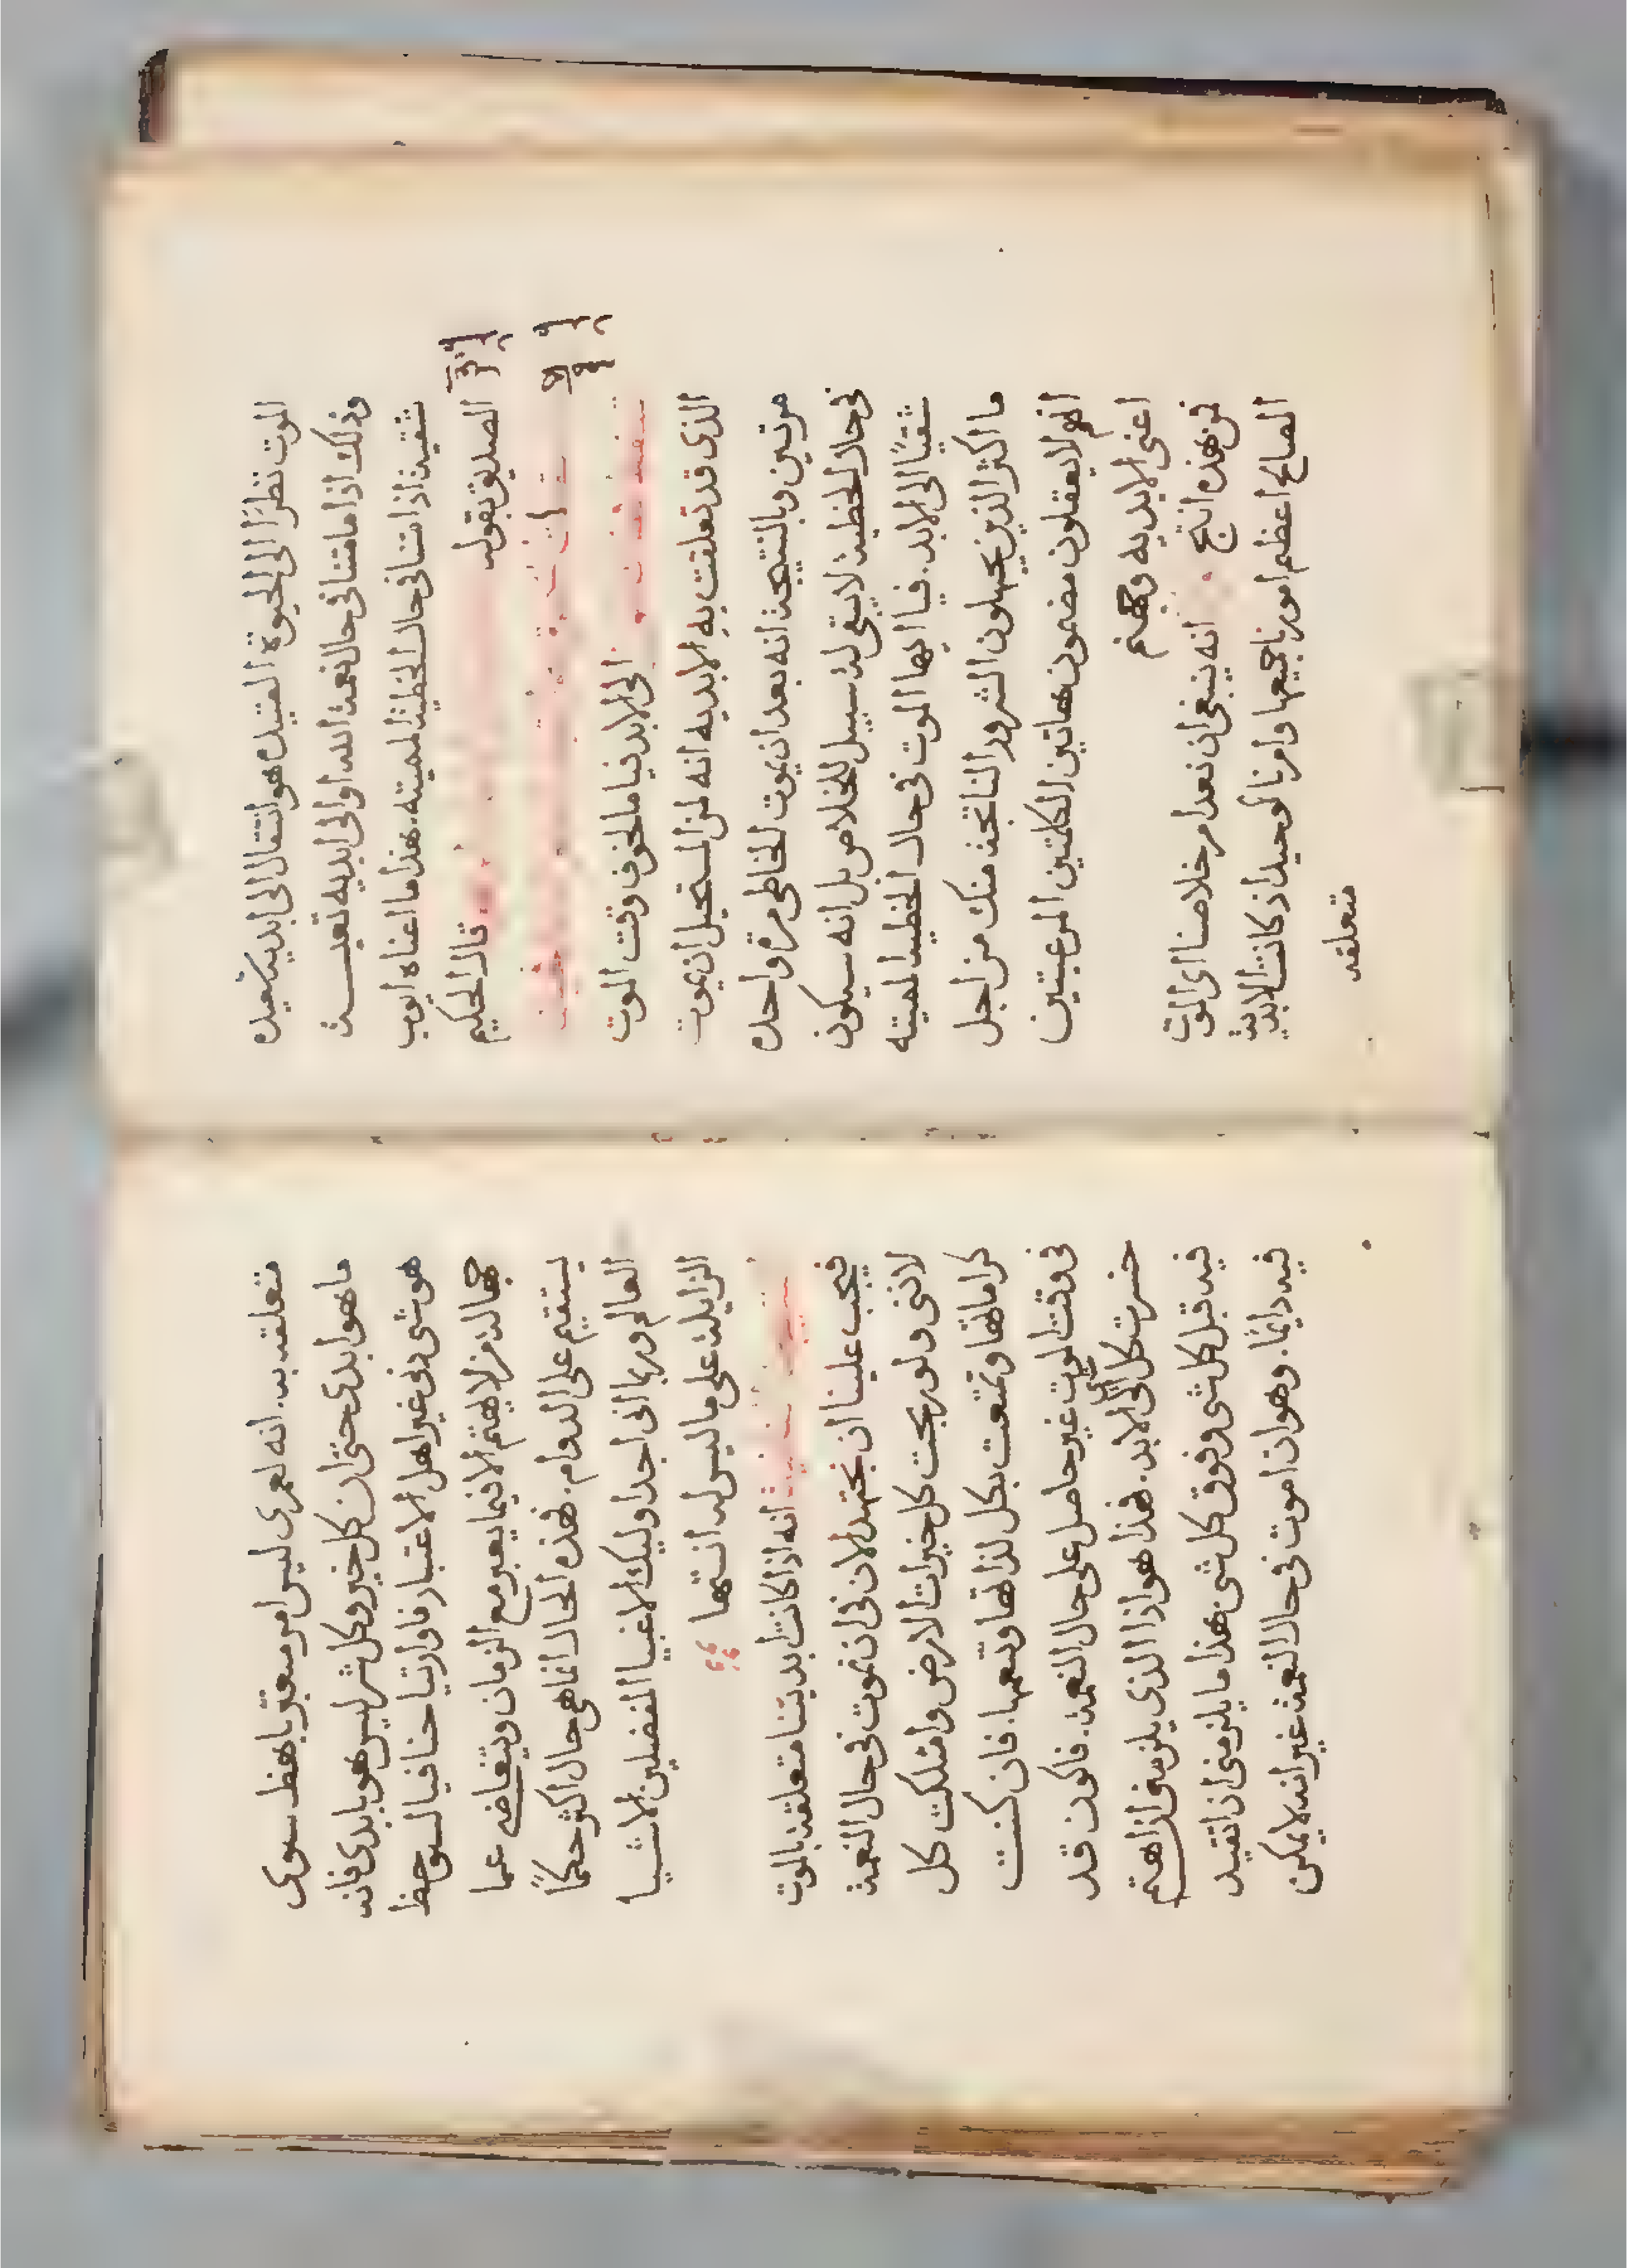 الموت نظرًا الى الحيوة العتيده هو انتقال الى ابديه سعيده
وذلك اذا ما متنا في حال نعمة الله او الى ابديه تعيسة
شقية اذا متنا في حال الخطية المميته. هذا ما اعناه ايوب
الصديق بقوله قال الحكيم
الى الابد فيا ما اخوف وقت الموت
الذى قد تعلقت به الابديه انه لمن المستحيل ان يموت
مرتين وبالنتيجة انه بعد ان يموت الخاطى مرة واحده
في حال الخطية لا يبقى له سبيل للخلاص بل انه سيكون
شقيًا الى الابد. فيا ايها الموت في حال الخطية المميته
ما اكثر الذين يجهلون الشرور الناتجة منك من اجل
انهم لا يعقلون مضمون هاتين الكلمتين المرعبتين
اعنى الابديه وجهنم
فمن هذه انتج انه ينبغى ان نعد امر خلاصنا اى الموت
الصالح اعظم امورنا جميعها وامرنا الوحيد اذ كانت الابدية
متعلقه
متعلقه به. انه لعمرى ليس امر معتبر باهظ سوى
ما هو ابدى حتى ان كل خير وكل شر ليس هو بابدى فانه
هو شى دنى غير اهل الاعتبار فاوارتيا حنا فيا لسو حظ
جهالة من لا يهتم الا فيما يعبر مع الزمان ويتغاضى عما
يستقيم على الدوام. فهذه الحال انما هى حال اكثر حكمًا
العالم وربما انى اجد اوليك الاغبيا المفضلين الاشيا
الزايلة على ما ليس له انتها
انه اذا كانت ابديتنا متعلقة بالموت
فيجب علينا ان نجتهد الان في ان نموت في حال النعمة
لاننى ولو ربحت كل خيرات الارض وامتلكت كل
كراماتها وتمتعت بكل لذاتها وتنعمها. فان كنت
في وقت الموت غير حاصل على حال النعمة. فاكون قد
خسرت كل شى الى الابد. فهذا هو اذا الذى يلزمنى ان اهتم
فيه قبل كل شى وفوق كل شى هذا ما يلزمنى ان اتقيد
فيه دايمًا. وهو ان اموت في حال النعمة غير انه لا يمكن